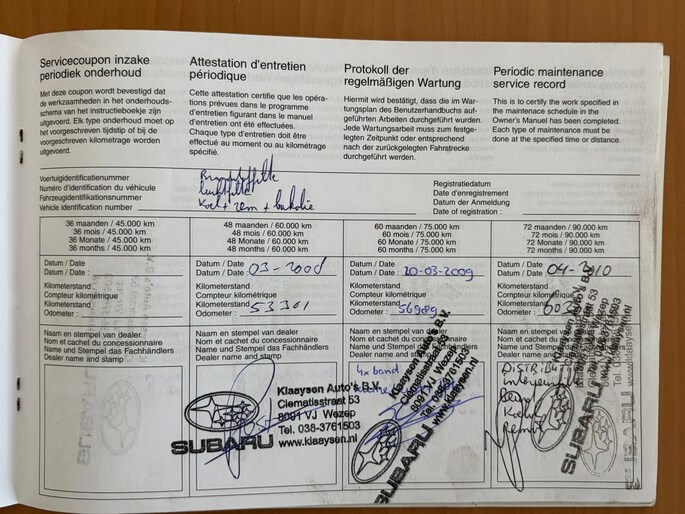 Servicecoupon inzake
periodiek onderhoud
Met deze coupon wordt bevestigd dat
de werkzaamheden in het onderhouds-
schema van het instructieboekje zijn
uitgevoerd. Elk type onderhoud moet op
het voorgeschreven tijdstip of bij de
voorgeschreven kilometrage worden
uitgevoerd.
Attestation d'entretien
périodique
Cette attestation certifie que les opéra-
tions prévues dans le programme
d'entretien figurant dans le manuel
d'entretien ont été effectuées.
Chaque type d'entretien doit être
effectué au moment ou au kilométrage
spécifié.
Protokoll der
regelmäßigen Wartung
Hiermit wird bestätigt, dass die im War-
tungsplan des Benutzerhandbuchs auf-
geführten Arbeiten durchgeführt wurden.
Jede Wartungsarbeit muss zum festge-
legten Zeitpunkt oder entsprechend
nach der zurückgelegten Fahrstrecke
durchgeführt werden.
Periodic maintenance
service record
This is to certify the work specified in
the maintenace schedule in the
Owner's Manual has been completed.
Each type of maintenance must be
done at the specified time or distance.
Voertuigidentificatienummer
Numéro d'identification du véhicule
Fahrzeugidentifikationsnummer
Vehicle identification number
Brandstoffilter
Luchtfilter
Koel + rem +
Registratiedatum
Date d'enregistrement
Datum der Anmeldung
Date of registration :
36 maanden / 45.000 km
36 mois / 45.000 km
36 Monate / 45.000 km
36 months / 45.000 km
Datum / Date
Datum / Date :
Kilometerstand
Compteur kilométrique
Kilometerstand
Odometer :
Naam en stempel van dealer
Nom et cachet du concessionnaire
Name und Stempel des Fachhändlers
Dealer name and stamp
48 maanden / 60.000 km
48 mois / 60.000 km
48 Monate / 60.000 km
48 months / 60.000 km
Datum / Date
Datum / Date : 03-2008
Kilometerstand
Compteur kilométrique
Kilometerstand
Odometer : 53301
Naam en stempel van dealer
Nom et cachet du concessionnaire
Name und Stempel des Fachhändlers
Dealer name and stamp
Klaayson Auto's B.V.
Clematisstraat 53
8091 VJ Wezep
Tel. 038-3761503
www.klaaysen.nl
SUBARU
60 maanden / 75.000 km
60 mois / 75.000 km
60 Monate / 75.000 km
60 months / 75.000 km
Datum / Date
Datum / Date : 20-03-2009
Kilometerstand
Compteur kilométrique
Kilometerstand
Odometer : 56989
Naam en stempel van dealer
Nom et cachet du concessionnaire
Name und Stempel des Fachhändlers
Dealer name and stamp
4x band
Klaayson Auto's B.V.
Clematisstraat 53
8091 VJ Wezep
Tel. 038-3761503
www.klaaysen.nl
SUBARU
72 maanden / 90.000 km
72 mois / 90.000 km
72 Monate / 90.000 km
72 months / 90.000 km
Datum / Date
Datum / Date : 04-2010
Kilometerstand
Compteur kilométrique
Kilometerstand
Odometer :
Naam en stempel van dealer
Nom et cachet du concessionnaire
Name und Stempel des Fachhändlers
Dealer name and stamp
SUBARU